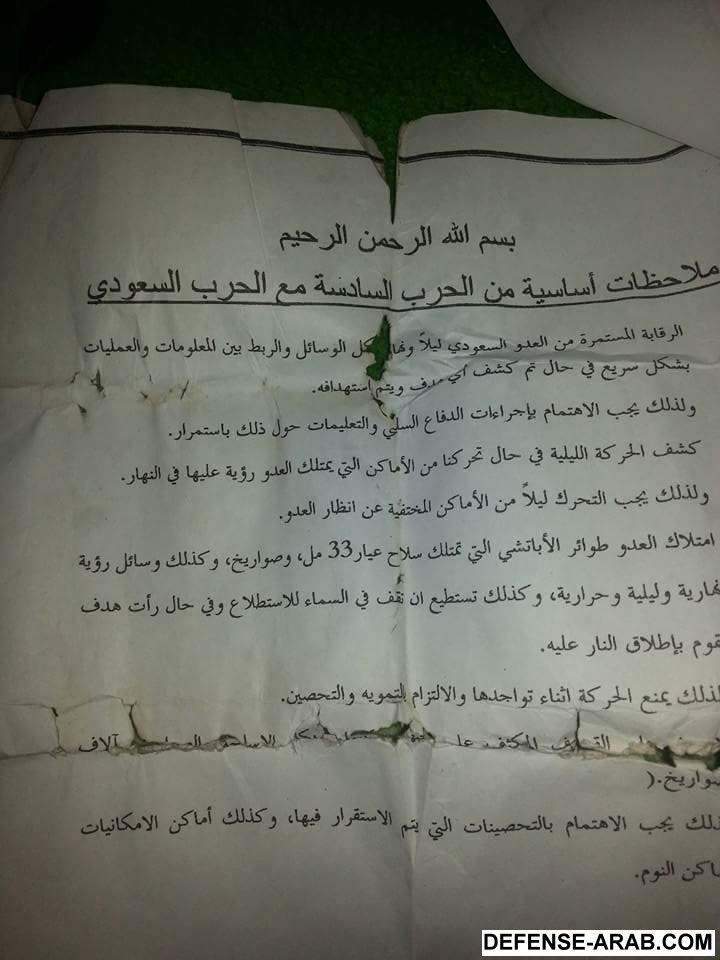 بسم الله الرحمن الرحيم
ملاحظات أساسية من الحرب السادسة مع الحرب السعودي
الرقابة المستمرة من العدو السعودي ليلاً كل الوسائل والربط بين المعلومات والعمليات
بشكل سريع في حال تم كشف أي هدف ويتم استهدافه.
ولذلك يجب الاهتمام بإجراءات الدفاع السلبي والتعليمات حول ذلك باستمرار.
كشف الحركة الليلية في حال تحركنا من الأماكن التي يمتلك العدو رؤية عليها في النهار.
ولذلك يجب التحرك ليلاً من الأماكن المختفية عن انظار العدو.
امتلاك العدو طوائر الأباتشي التي تمتلك سلاح عيار33 مل، وصواريخ، وكذلك وسائل رؤية
نهارية وليلية وحرارية، وكذلك تستطيع ان تقف في السماء للاستطلاع وفي حال رأت هدف
تقوم بإطلاق النار عليه.
لذلك يمنع الحركة اثناء تواجدها والالتزام بالتمويه والتحصين.
المكثف آلاف
صواريخ.(
يجب الاهتمام بالتحصينات التي يتم الاستقرار فيها، وكذلك أماكن الامكانيات
النوم.
DEFENSE-ARAB.COM